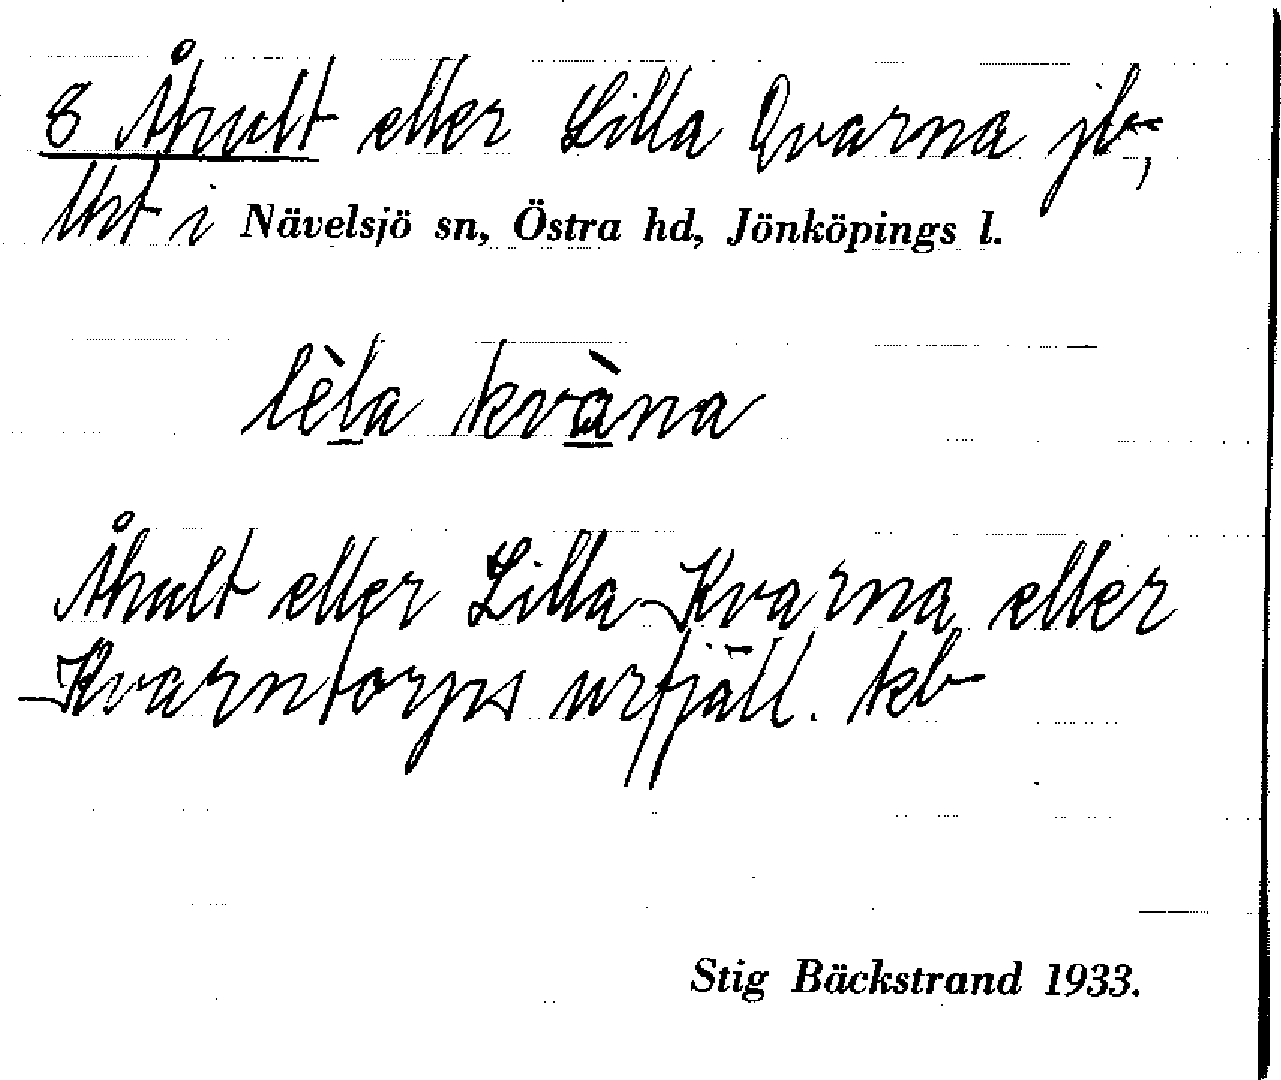 8 Åhult eller Lilla Qvarna jb,
lht i Nävelsjö sn, Östra hd, Jönköpings l.
lèla kvàna
Åhult eller Lilla Kvarna eller
Kvarntorps urfjäll. kb
Stig Bäckstrand 1933.